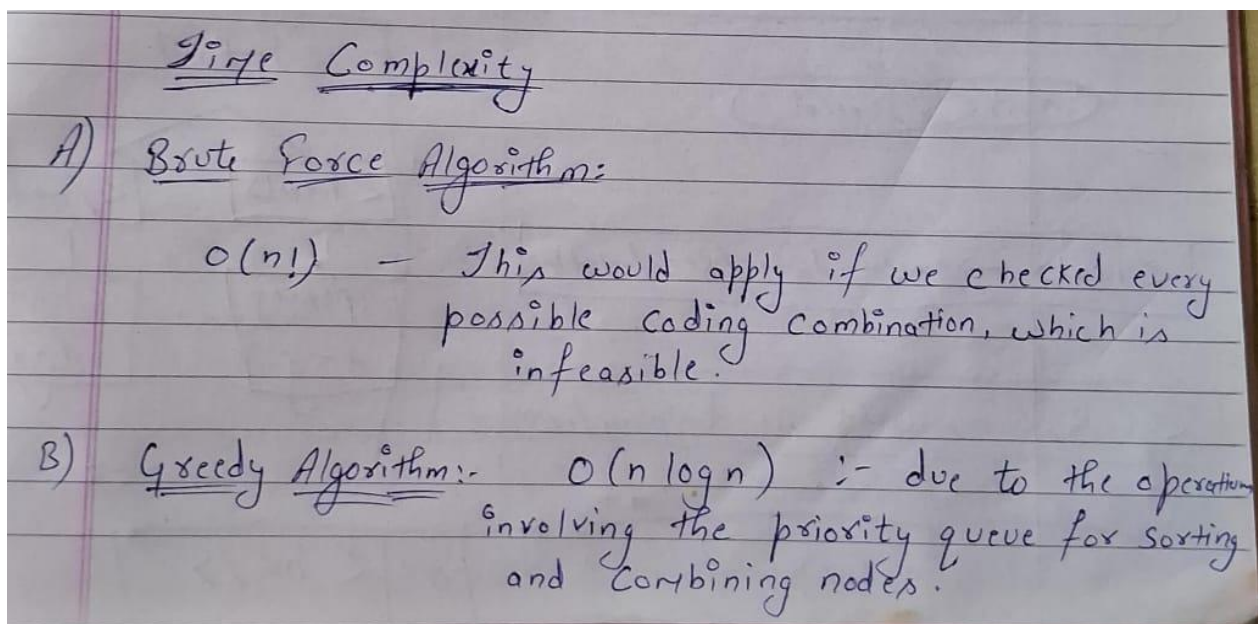 Time Complexity
A) Brute Force Algorithm:
O(n!) - This would apply if we checked every
possible coding combination, which is
infeasible.
B) Greedy Algorithm:- O(n log n) :- due to the operations
involving the priority queue for sorting
and combining nodes.